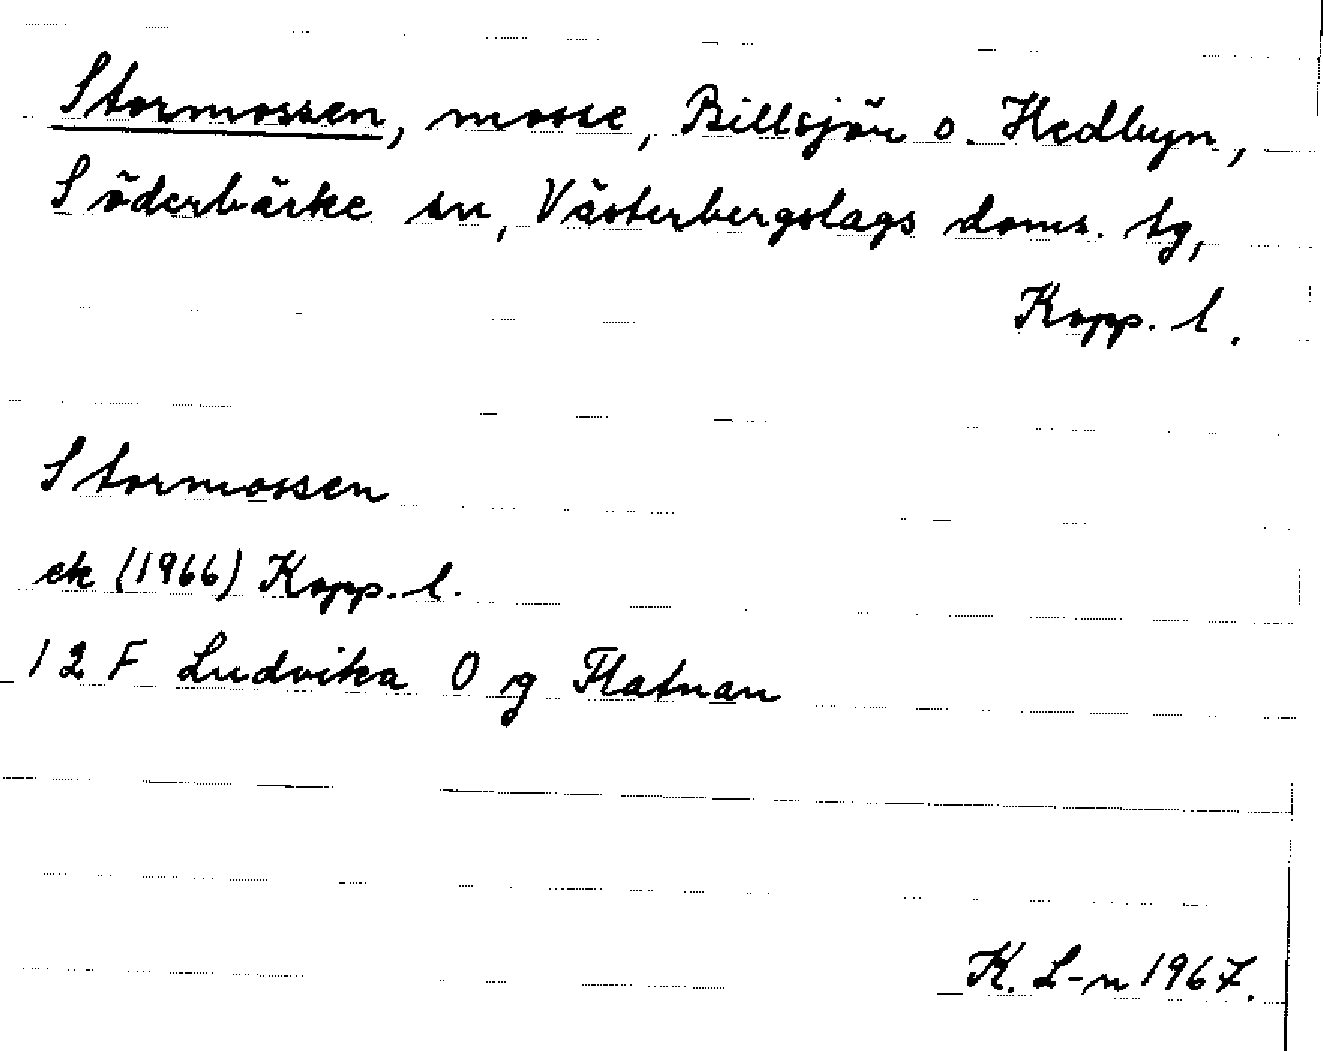 Stormossen, mosse, Billsjön o. Hedbyn,
Söderbärke sn, Västerbergslags doms. tg,
Kopp. l.
Stormossen
ek (1966) Kopp. l.
12 F Ludvika O g Flatnan
K. L-n 1967.